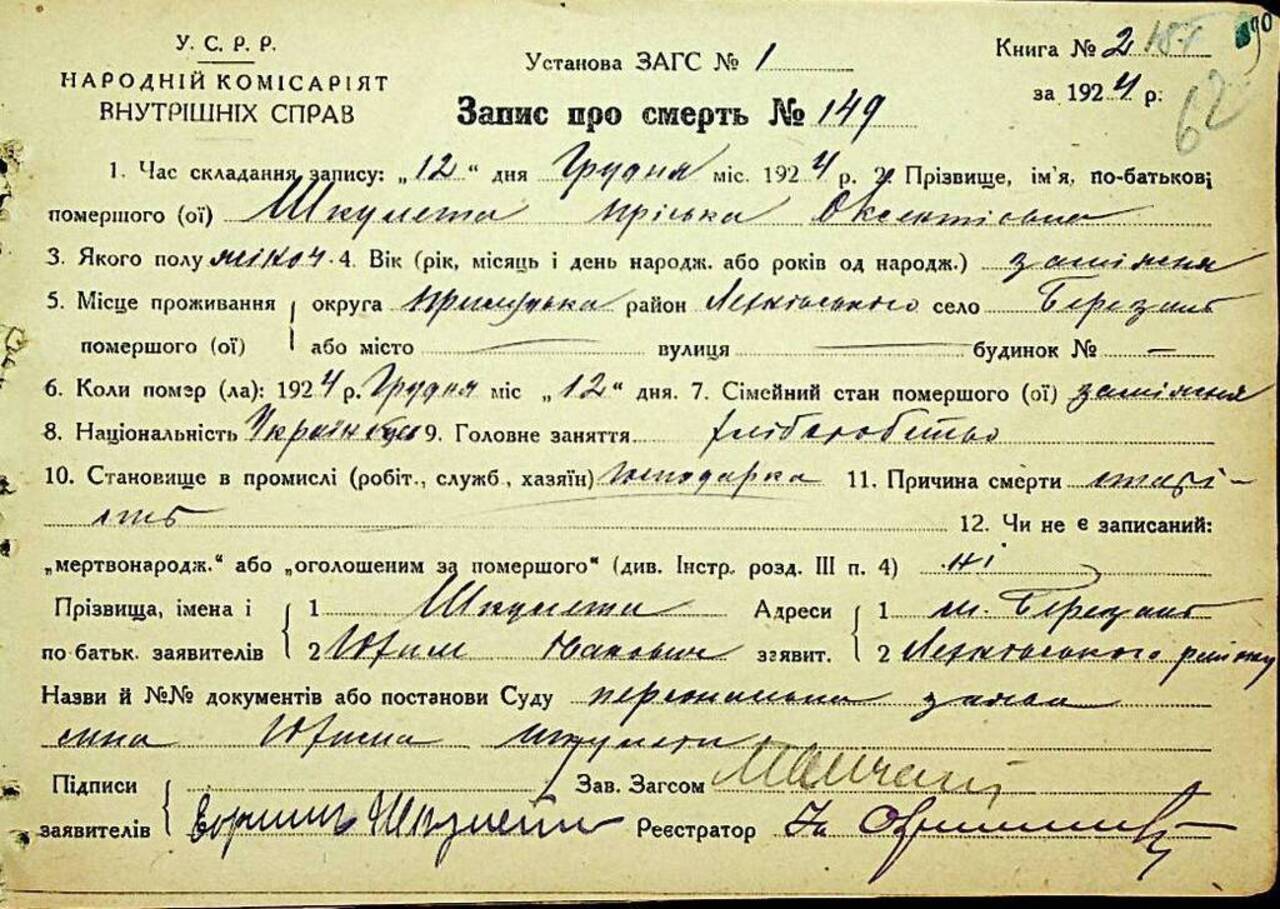 У. С. Р. Р.
НАРОДНІЙ КОМІСАРІЯТ
ВНУТРІШНІХ СПРАВ
Установа ЗАГС № 1
Книга № 2
за 1924 р:
62
Запис про смерть № 149
1. Час складання запису: „12“ дня Грудня міс. 1924 р. 2. Прізвище, ім'я, по-батькові
помершого (ої) Шкулета Пріська Оксентіовна
3. Якого полу жіноч. 4. Вік (рік, місяць і день народж. або років од народж.) заміжня
5. Місце проживання округа Прилуцька район Яцківського село Березань
помершого (ої) або місто — вулиця — будинок № —
6. Коли помер (ла): 1924 р. Грудня міс „12“ дня. 7. Сімейний стан помершого (ої) заміжня
8. Національність 9. Головне заняття хліборобство
10. Становище в промислі (робіт., служб., хазяїн) господарка 11. Причина смерти старі-
сть 12. Чи не є записаний:
„мертвонародж.“ або „оголошеним за помершого“ (див. Інстр. розд. III п. 4) ні
Прізвища, імена і 1 Шкулета Адреси 1 Березань
по батьк. заявителів 2 Юхим Іванович заявит. 2 району
Назви й №№ документів або постанови Суду персональна заява
сина Юхима Шкулети
Підписи Зав. Загсом
заявителів Реєстратор